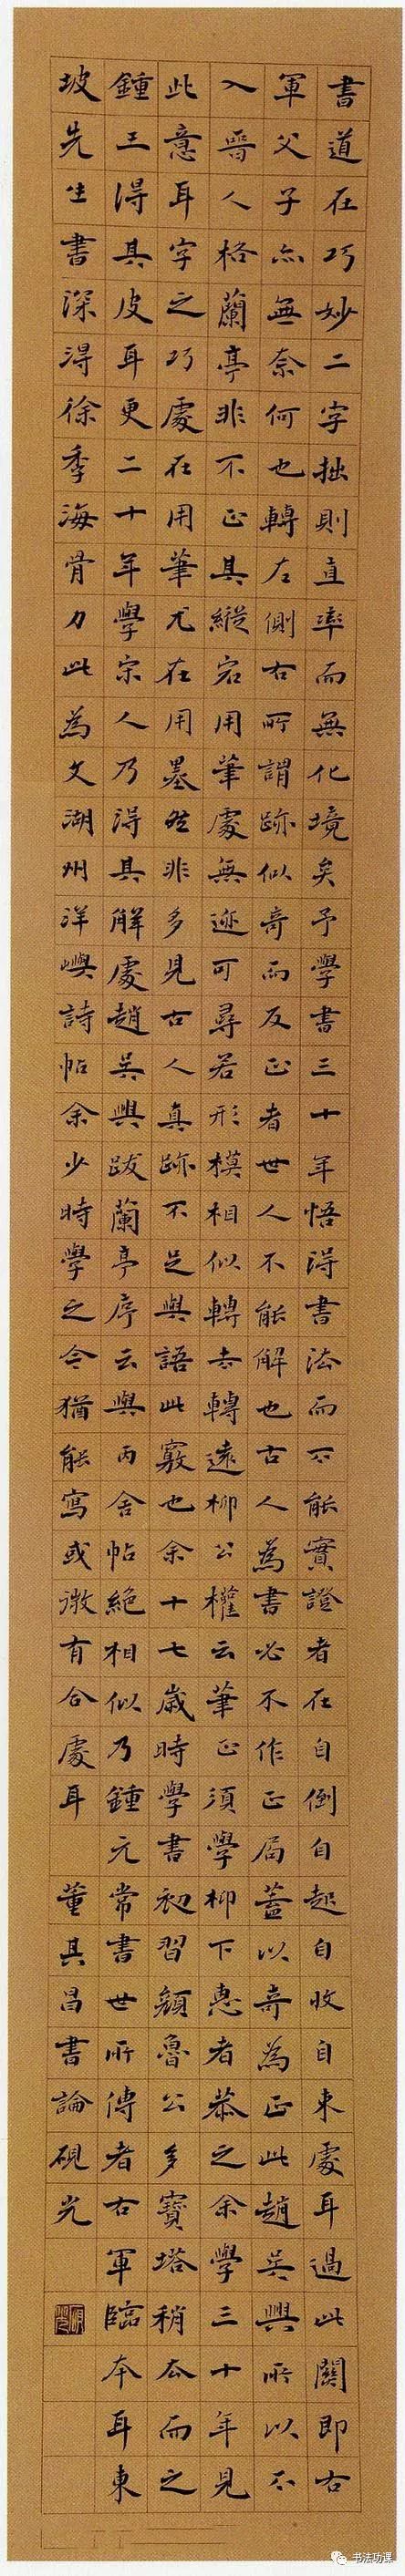 書道在巧妙二字拙則直率而無化境矣予學書三十年悟得書法而不能實證者在自倒自起自收自束處耳過此關即右
軍父子亦無奈何也轉左側右所謂跡似奇而反正者世人不能解也古人為書必不作正局蓋以奇為正此趙吳興所以不
入晉人格蘭亭非不正其縱宕用筆處無迹可尋若形模相似轉去轉遠柳公權云筆正須學柳下惠者恭之余學三十年見
此意耳字之巧處在用筆尤在用墨然非多見古人真跡不足與語此竅也余十七歲時學書初習顏魯公多寶塔稍去而之
鍾王得其皮耳更二十年學宋人乃得其解處趙吳興跋蘭亭序云與丙舍帖絕相似乃鍾元常書世所傳者右軍臨本耳東
坡先生書深得徐季海骨力此為文湖州洋嶼詩帖余少時學之今猶能寫或微有合處耳 董其昌書論硯光
书法功课